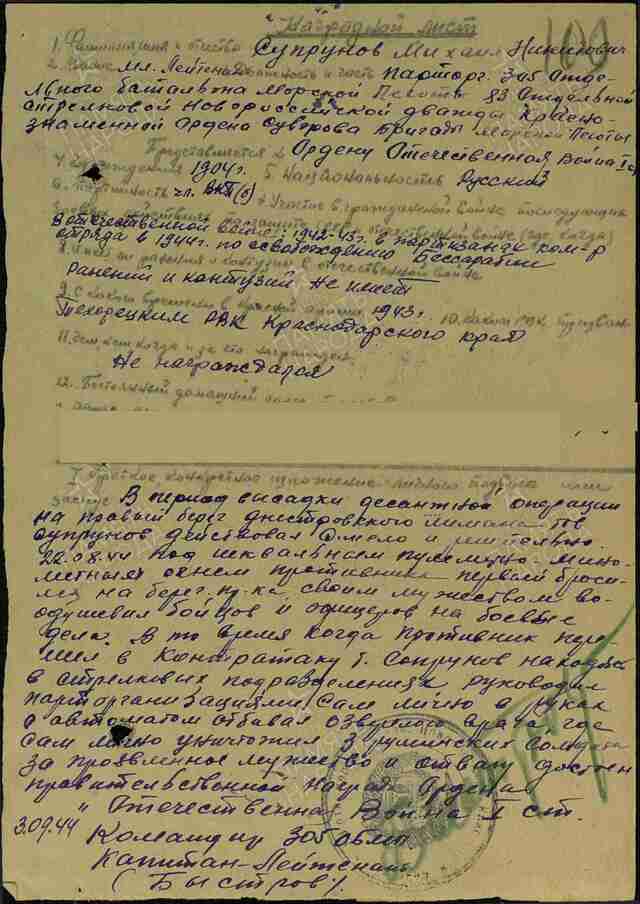 Наградной лист
100
1. Фамилия имя и отчество Супрунов Михаил Никитович
2. Звание мл. Лейтенант Должность и часть парторг. 305 Отде-
льного батальона Морской Пехоты 83 Отдельной
стрелковой Новороссийской дважды Красно-
знаменной Ордена Суворова бригады Морской Пехоты
Представляется к Ордену Отечественная Война
4. рождения 1904г. 5. Национальность Русский
6. партийность чл. ВКП(б) 7. Участие в гражданской войне последующих
отечественной войне (где, когда)
В отечественной войне: 1942-43г. в партизанск ком-р
отряда в 1944г. по освобождению Бессарабии
ранения и контузии в отечественной войне
Ранений и контузий Не имеет
9. С какого времени в Красной армии 1943г. 10. каким РВК призван
Тихорецким РВК Краснодарского края
11. Чем когда и за что награжден
Не награждался
12. Постоянный домашний
I. Краткое, конкретное изложение личного подвига или
заслуг В период высадки десантной операции
на правый берег днестровского лимана тов
Супрунов действовал смело и решительно
22.08.44 под шквальным пулеметно-мино-
метным огнем противника первый броси-
лся на берег пр-ка, своим мужеством во-
одушевил бойцов и офицеров на боевые
дела. В то время когда противник пере-
шел в Контратаку т. Супрунов находясь
в стрелковых подразделениях руководил
парторганизациями сам лично в руках
с автоматом отбивал озверелого врага где
сам лично уничтожил 3 румынских солдат
за проявленное мужество и отвагу достоен
правительственной наград Ордена
"Отечественная Война I ст.
3.09.44 Командир 305 обмп
Капитан-Лейтенант
(Быстров).